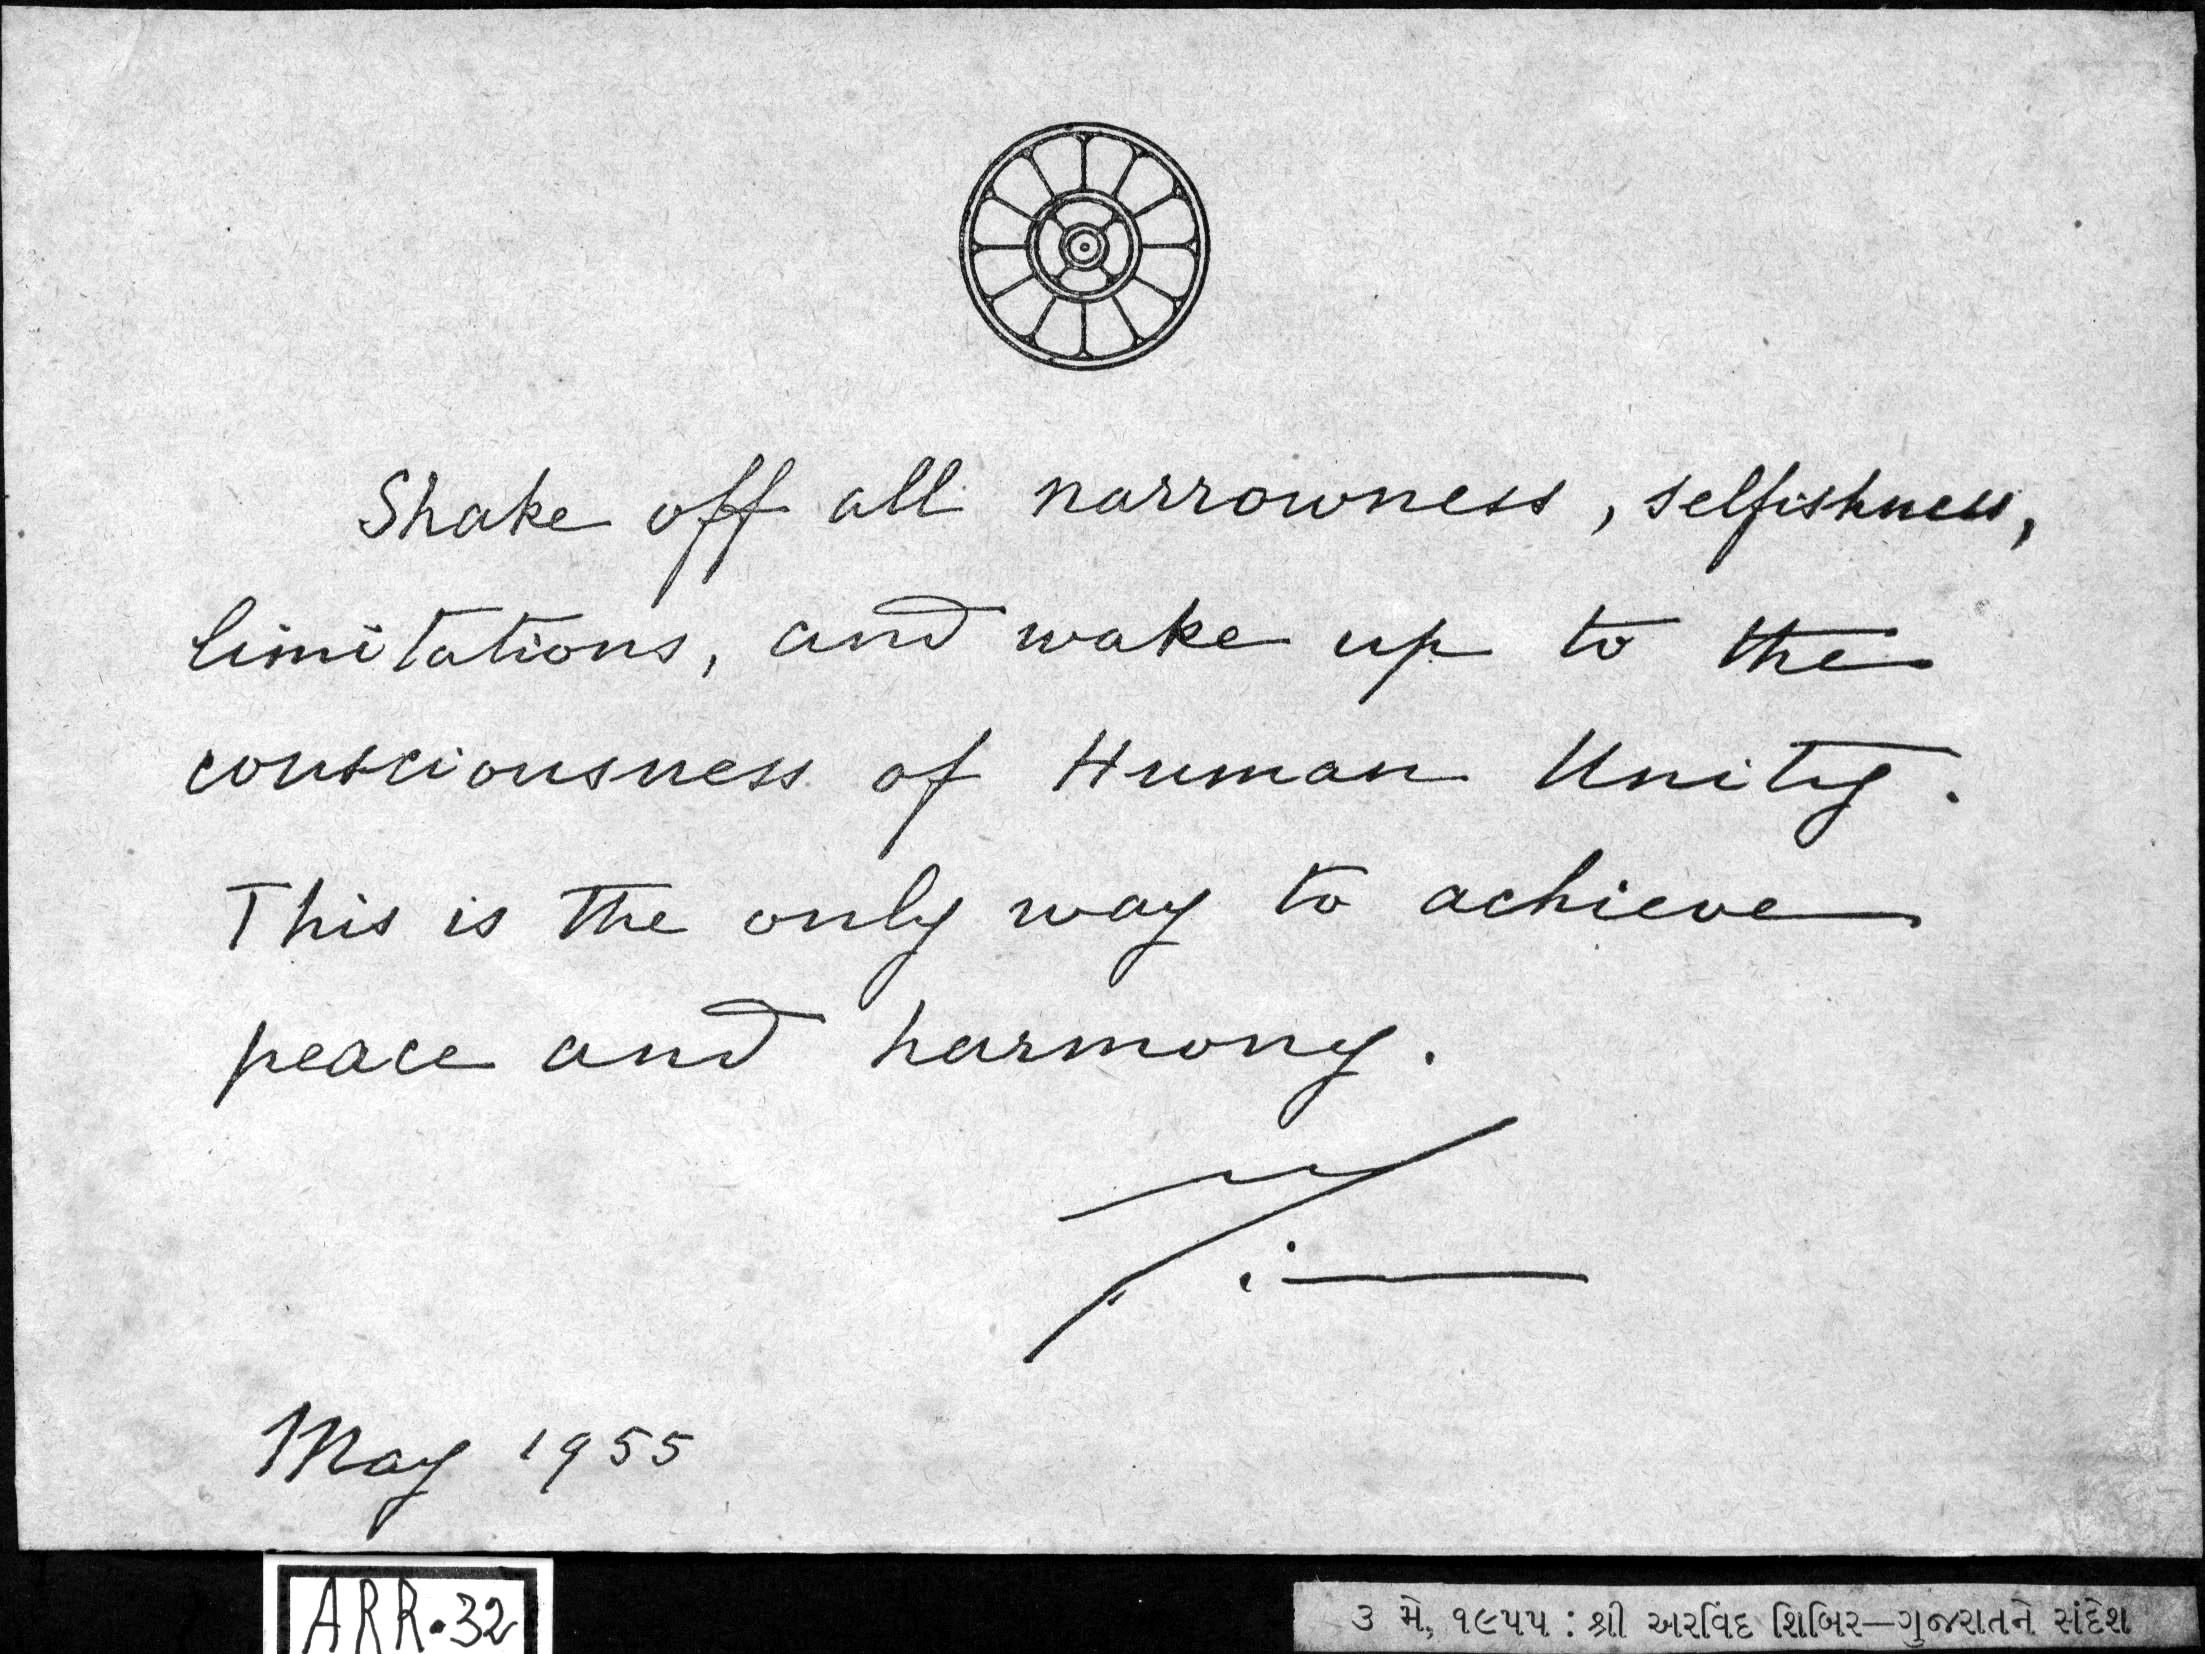 Shake off all narrowness, selfishness,
limitations, and wake up to the
consciousness of Human Unity.
This is the only way to achieve
peace and harmony.
May 1955
ARR.32
૩ મે, ૧૯૫૫ : શ્રી અરવિંદ શિબિર—ગુજરાતને સંદેશ